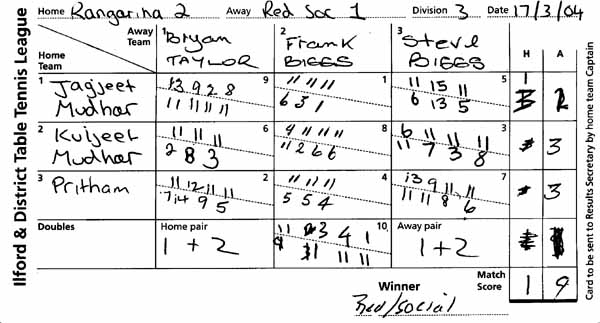 Ilford & District Table Tennis League
Home Rangarina 2 Away Red Soc 1 Division 3 Date 17/3/04
Away Team
Home Team
1 Bryan TAYLOR
2 Frank BIGGS
3 Steve BIGGS
H A
1 Jagjeet Mudhar
9
13 9 2 8
11 11 11 11
1
11 11 11
6 3 1
5
11 15 11
6 13 5
1
2 Kuljeet Mudhar
6
11 11 11
2 8 3
8
9 11 11 11
11 2 6 6
3
6 11 11 11
11 7 3 8
3
3 Pritham
2
11 12 11 11
7 14 9 5
4
11 11 11
5 5 4
7
13 9 11 11
11 11 8 6
3
Doubles
Home pair
1 + 2
10
11 3 4 1
9 11 11 11
Away pair
1 + 2
Winner
Red/social
Match Score
1 9
Card to be sent to Results Secretary by home team Captain